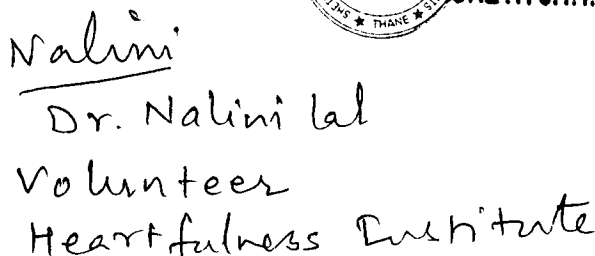 THANE
Nalini
Dr. Nalini Lal
Volunteer
Heartfulness Institute